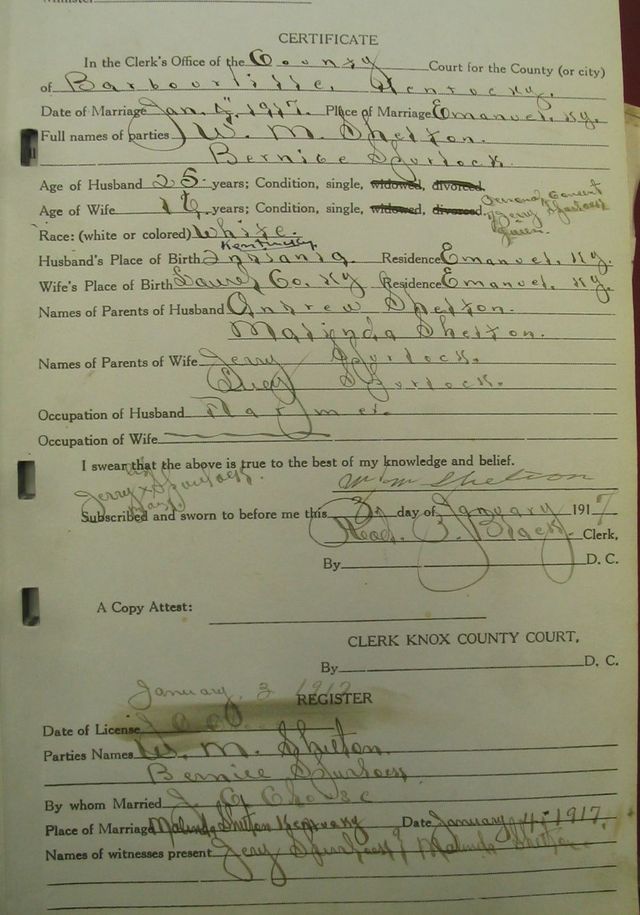 CERTIFICATE
In the Clerk's Office of the County Court for the County (or city)
of Barbourville, Kentucky.
Date of Marriage Jan. 4, 1917. Place of Marriage Emanuel, Ky.
Full names of parties W. M. Shelton.
Bernice Spurlock.
Age of Husband 25 years; Condition, single, widowed, divorced.
Personal Consent
Age of Wife years; Condition, single, widowed, divorced.
of Jerry Spurlock
Given.
Race: (white or colored) White.
Kentucky
Husband's Place of Birth Indiana. Residence Emanuel, Ky.
Wife's Place of Birth Laurel Co. Ky Residence Emanuel, Ky.
Names of Parents of Husband Andrew Shelton.
Malinda Shelton.
Names of Parents of Wife Jerry Spurlock.
Spurlock.
Occupation of Husband Farmer.
Occupation of Wife
I swear that the above is true to the best of my knowledge and belief.
his
Jerry x Spurlock.
mark
W. M. Shelton
Subscribed and sworn to before me this 3 day of January 1917
Read. P. Black. Clerk,
By D. C.
A Copy Attest:
CLERK KNOX COUNTY COURT,
By D. C.
January, 3 1917
REGISTER
Date of License
Parties Names W. M. Shelton.
Bernice Spurlock
By whom Married J.
Place of Marriage Malinda Shelton Kentucky Date January, 4, 1917.
Names of witnesses present Jerry Spurlock & Malinda Shelton.